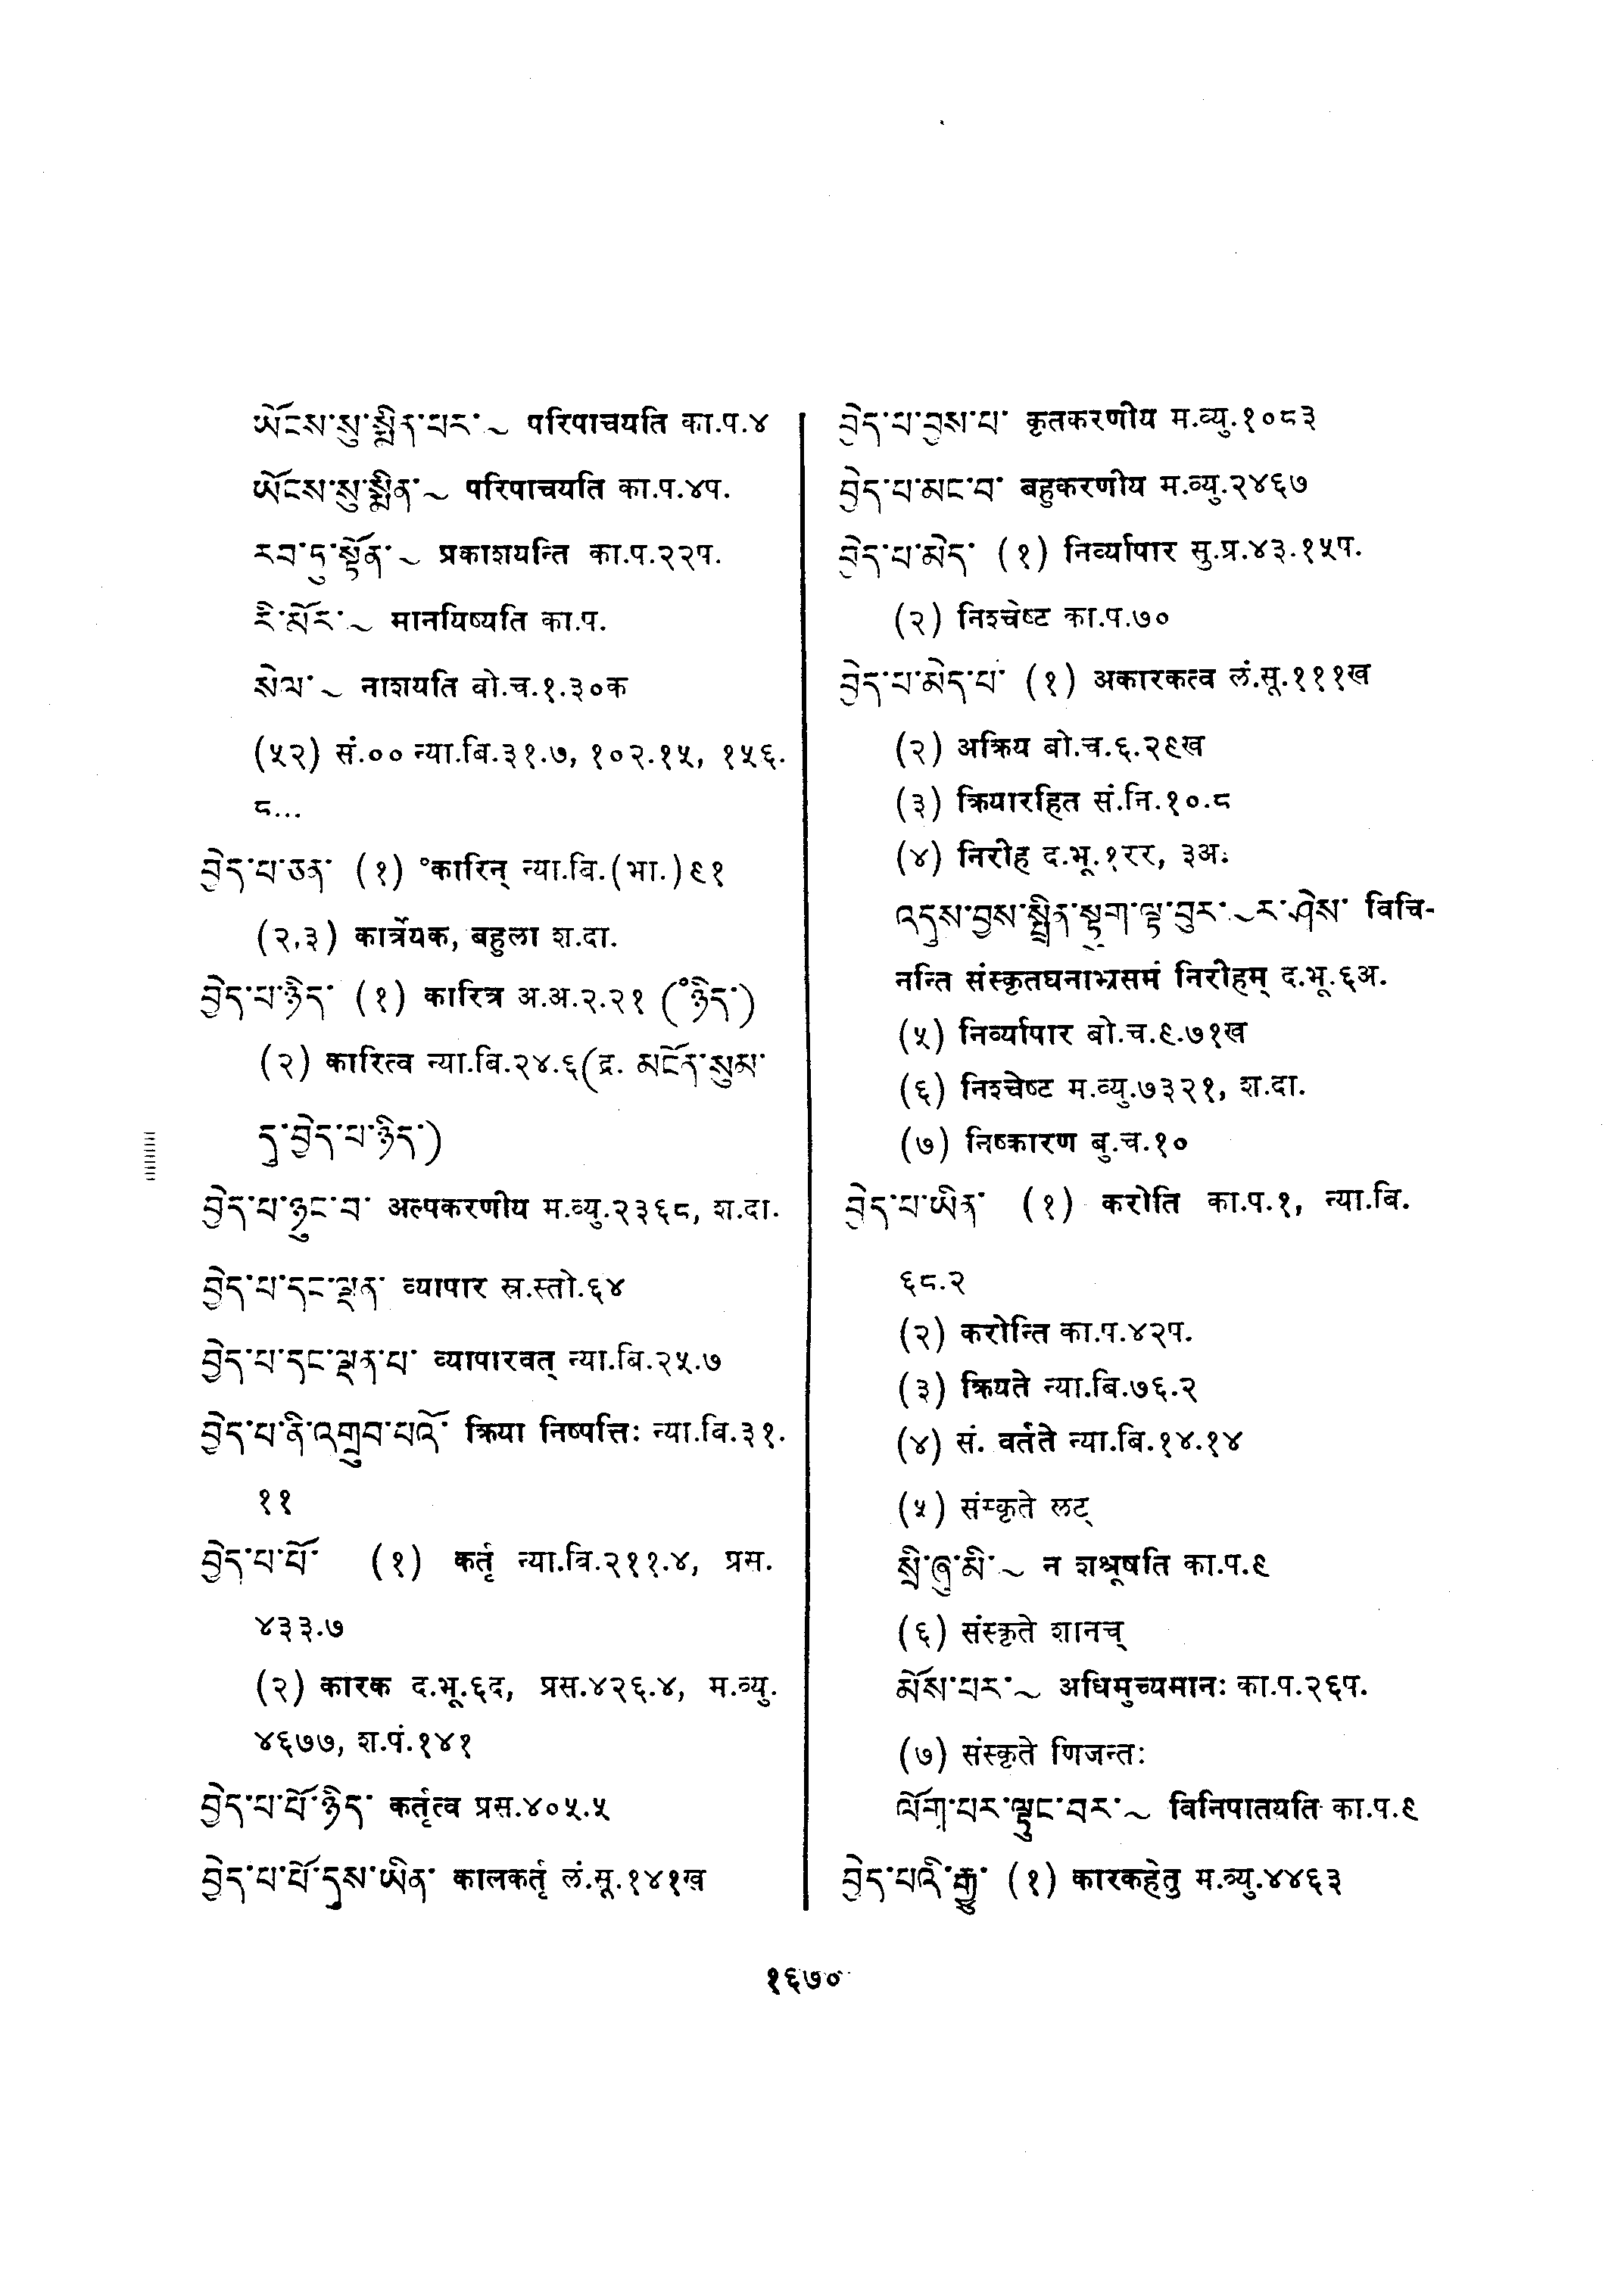 ཡོངས་སུ་སྨིན་པར་~ परिपाचयति का.प.४
ཡོངས་སུ་སྨིན་~ परिपाचयति का.प.४प.
རབ་ཏུ་སྟོན་~ प्रकाशयन्ति का.प.२२प.
རི་མོར་~ मानयिष्यति का.प.
སེལ་~ नाशयति बो.च.१.३०क
(५२) सं.०० न्या.बि.३१.७, १०२.१५, १५६.
८...
བྱེད་པ་ཅན་ (१) °कारिन् न्या.बि.(भा.)९१
(२,३) कार्त्रेयक, बहुला श.दा.
བྱེད་པ་ཉིད་ (१) कारित्र अ.अ.२.२१ (°ཉིད་)
(२) कारित्व न्या.बि.२४.६(द्र. མངོན་སུམ་
དུ་བྱེད་པ་ཉིད་)
བྱེད་པ་ཉུང་བ་ अल्पकरणीय म.व्यु.२३६८, श.दा.
བྱེད་པ་དང་ལྡན་ व्यापार स्र.स्तो.६४
བྱེད་པ་དང་ལྡན་པ་ व्यापारवत् न्या.बि.२५.७
བྱེད་པ་ནི་འགྲུབ་པའོ་ क्रिया निष्पत्तिः न्या.बि.३१.
११
བྱེད་པ་པོ་ (१) कर्तृ न्या.बि.२११.४, प्रस.
४३३.७
(२) कारक द.भू.६द, प्रस.४२६.४, म.व्यु.
४६७७, श.पं.१४१
བྱེད་པ་པོ་ཉིད་ कर्तृत्व प्रस.४०५.५
བྱེད་པ་པོ་དུས་ཡིན་ कालकर्तृ लं.सू.१४१ख
བྱེད་པ་བྱས་པ་ कृतकरणीय म.व्यु.१०८३
བྱེད་པ་མང་བ་ बहुकरणीय म.व्यु.२४६७
བྱེད་པ་མེད་ (१) निर्व्यापार सु.प्र.४३.१५प.
(२) निश्चेष्ट का.प.७०
བྱེད་པ་མེད་པ་ (१) अकारकत्व लं.सू.१११ख
(२) अक्रिय बो.च.६.२९ख
(३) क्रियारहित सं.नि.१०.८
(४) निरीह द.भू.१रर, ३अः
འདུས་བྱས་སྤྲིན་སྟུག་ལྟ་བུར་~ར་ཤེས་ विचि-
नन्ति संस्कृतघनाभ्रसमं निरीहम् द.भू.६अ.
(५) निर्व्यापार बो.च.९.७१ख
(६) निश्चेष्ट म.व्यु.७३२१, श.दा.
(७) निष्कारण बु.च.१०
བྱེད་པ་ཡིན་ (१) करोति का.प.१, न्या.बि.
६८.२
(२) करोन्ति का.प.४२प.
(३) क्रियते न्या.बि.७६.२
(४) सं. वर्तते न्या.बि.१४.१४
(५) संस्कृते लट्
སྲི་ཞུ་མི་~ न शश्रूषति का.प.९
(६) संस्कृते शानच्
མོས་པར་~ अधिमुच्यमानः का.प.२६प.
(७) संस्कृते णिजन्तः
ལོག་པར་ལྟུང་བར་~ विनिपातयति का.प.९
བྱེད་པའི་རྒྱུ་ (१) कारकहेतु म.व्यु.४४६३
१६७०